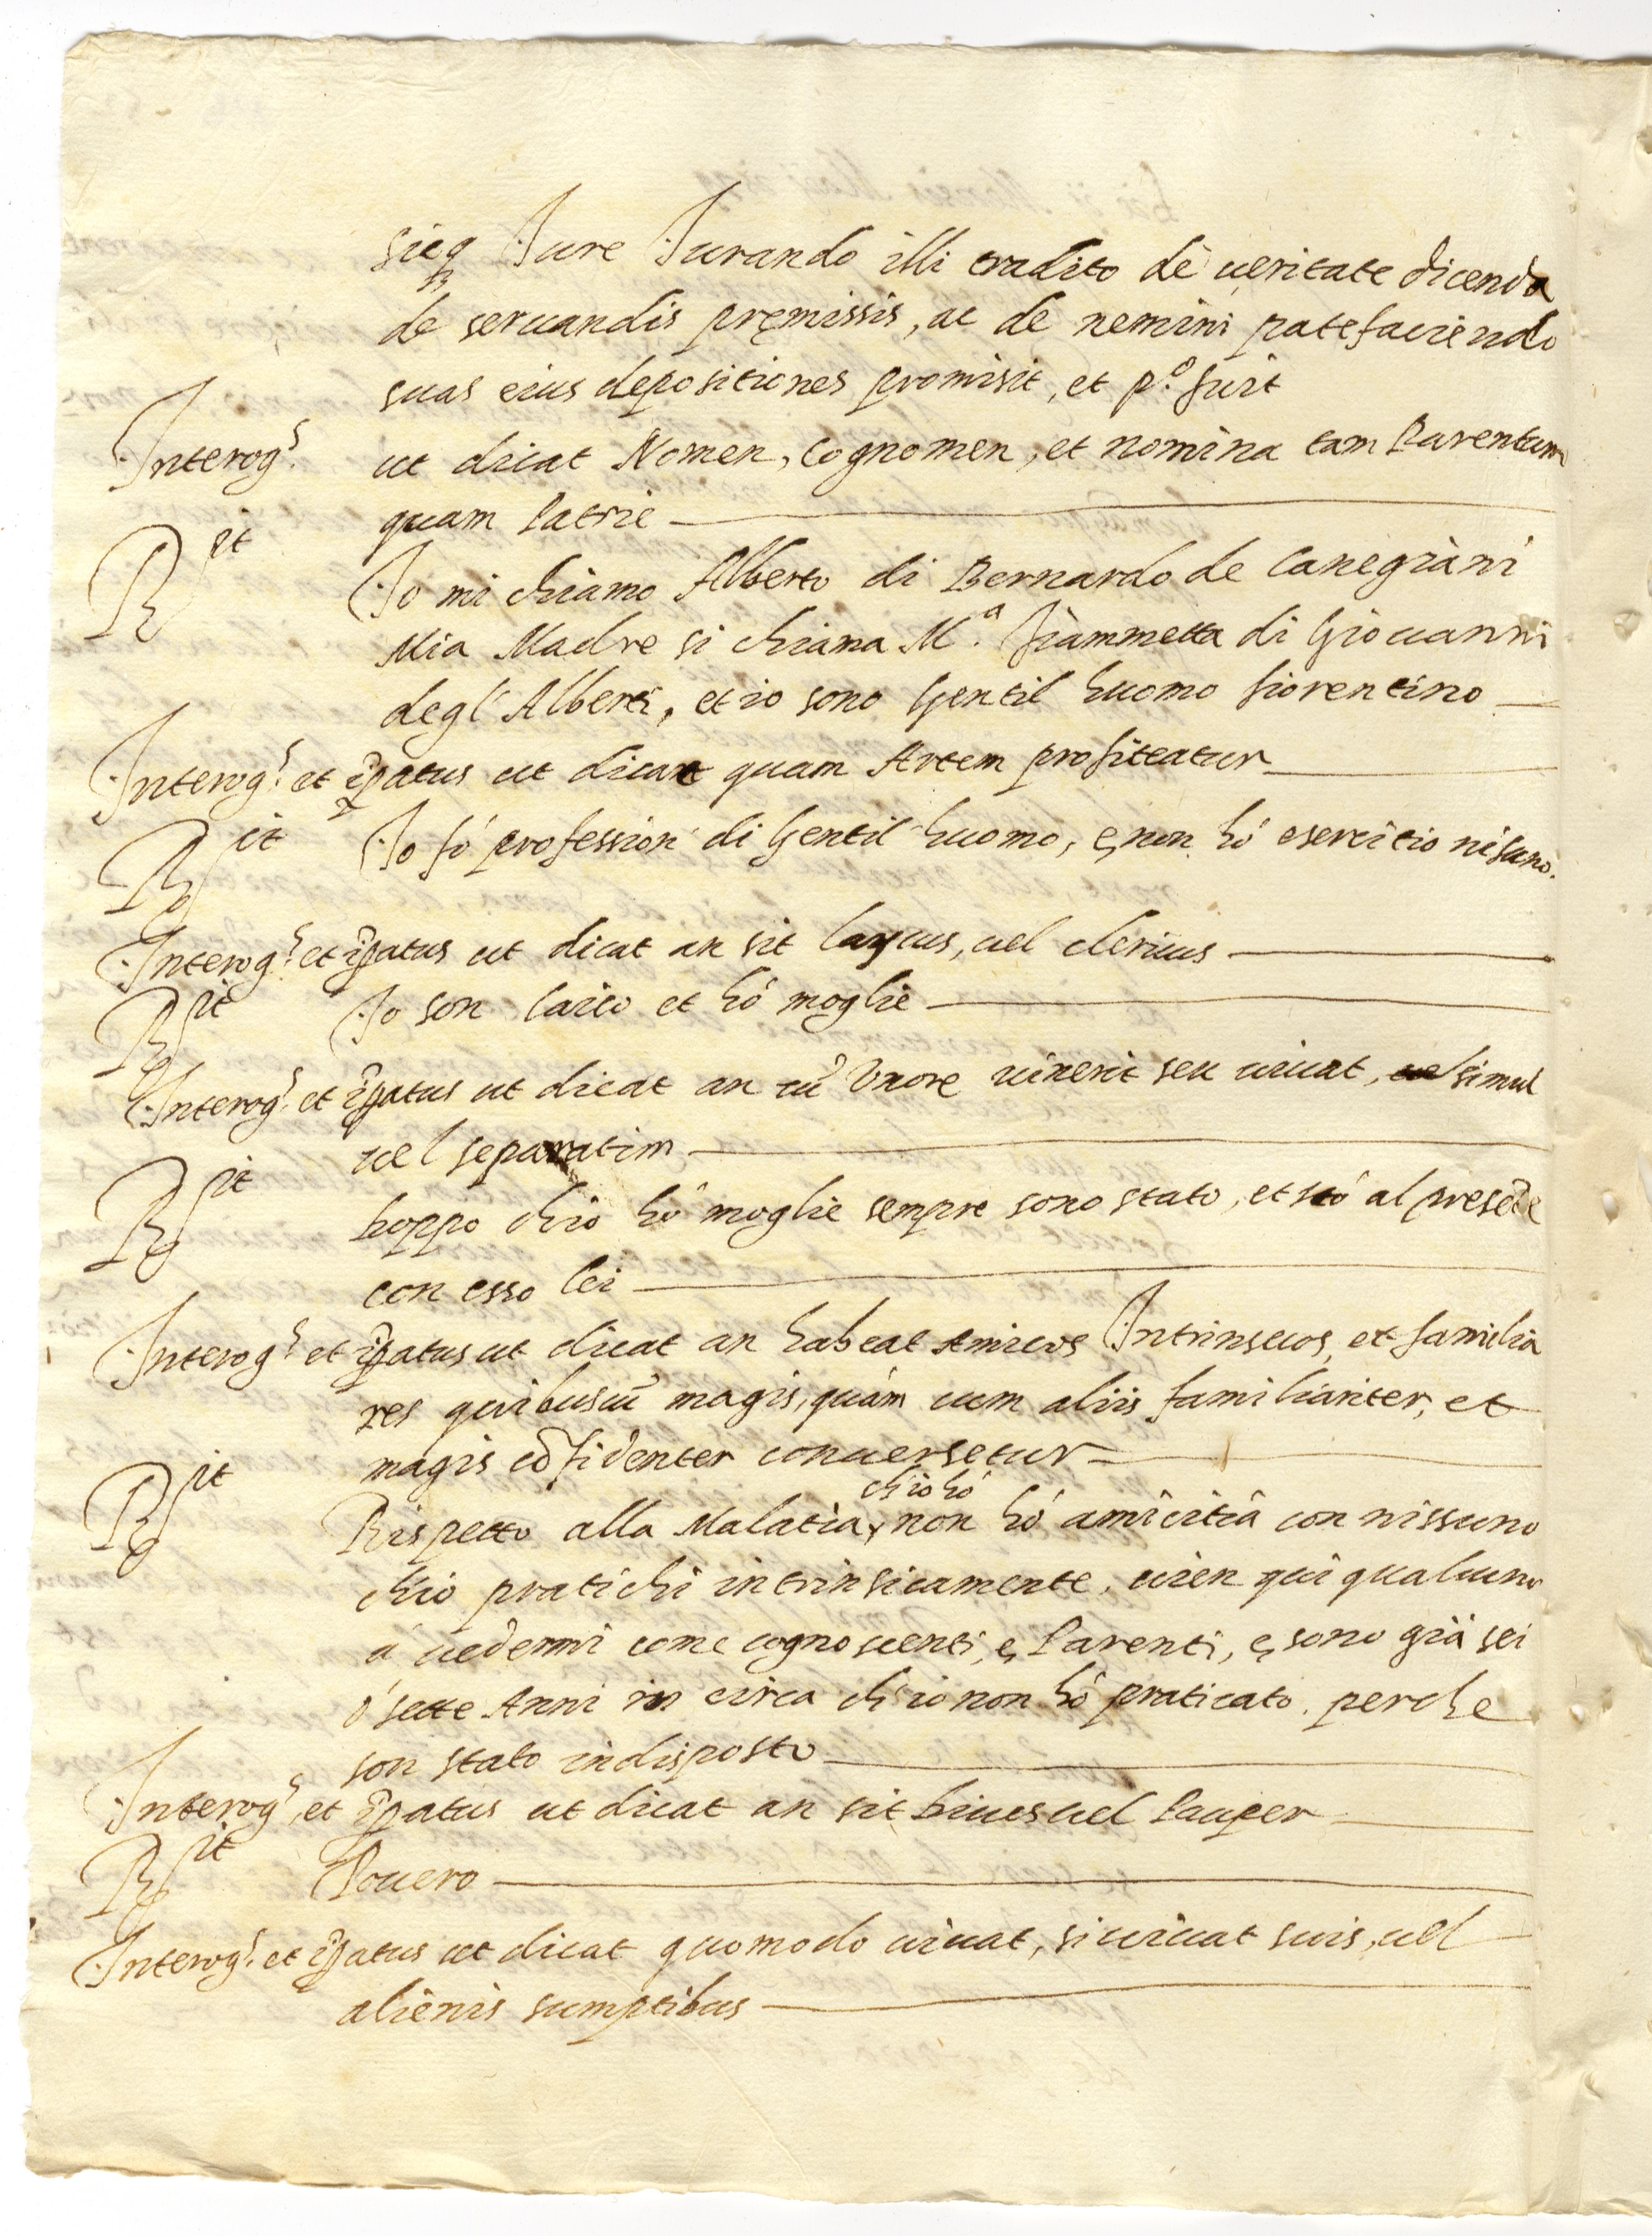 sicq Jure Jurando illi tradito de ueritate dicenda
de seruandis premissis, ac de nemini patefaciendo
suas eius depositiones promisit, et p.º fuit
Interog.s ut dicat Nomen, Cognomen, et nomina tam Parentum
quam Patrie
R.it Io mi chiamo Alberto di Bernardo de Canegiani
Mia Madre si chiama M.a fiammetta di Giouanni
degl' Alberti, et io sono Gentil huomo fiorentino
Interog.s et ip̃atus ut dicat quam Artem profiteatur
R.it Io fó profession' di Gentil huomo, e non hó esercitio nisuno.
Interog.s et ip̃atus ut dicat an sit laycus, uel clericus
R.it Io son laico et hó moglie
Interog.s et ip̃atus ut dicat an cũ Vxore uixerit seu uiuat, simul
uel separatim
R.it Doppo ch'io hó moglie sempre sono stato, et stó al presẽte
con esso lei
Interog.s et ip̃atus ut dicat an habeat Amicos Intrinsecos, et familia
res quibuscũ magis, quám cum aliis familiariter, et
magis cõfidenter conuersetur
ch'io hó
R.it Rispetto alla Malatia, non hó amicitia con nissuno
ch'io pratichi intrinsicamente, uien qui qualcuno
á uedermi come cognoscenti, e Parenti, e sono già sei
ó sette Anni in circa ch'io non hó praticato. perche
son stato indisposto
Interog.s et ip̃atus ut dicat an sit Diues uel Pauper
R.it Pouero
Interog.s et ip̃atus ut dicat quomodo uiuat, si uiuat suis, uel
alienis sumptibus